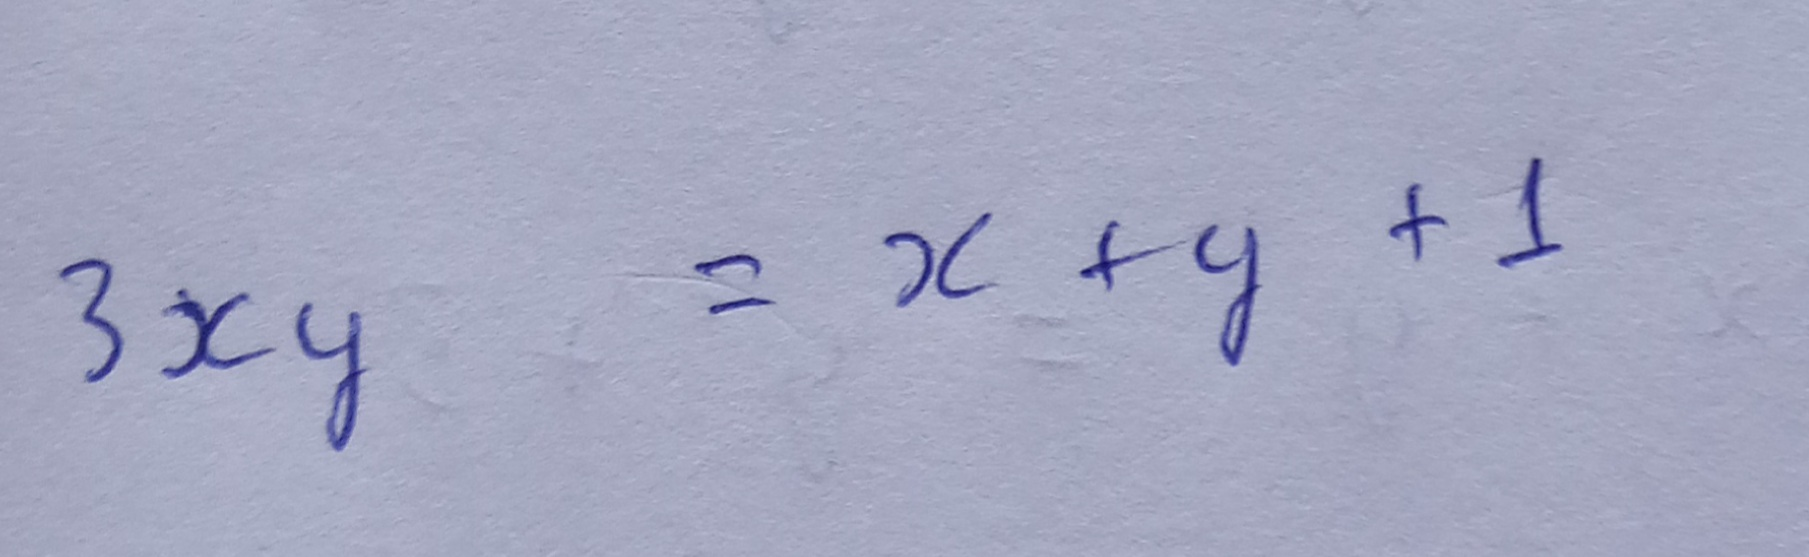 3xy = x + y + 1